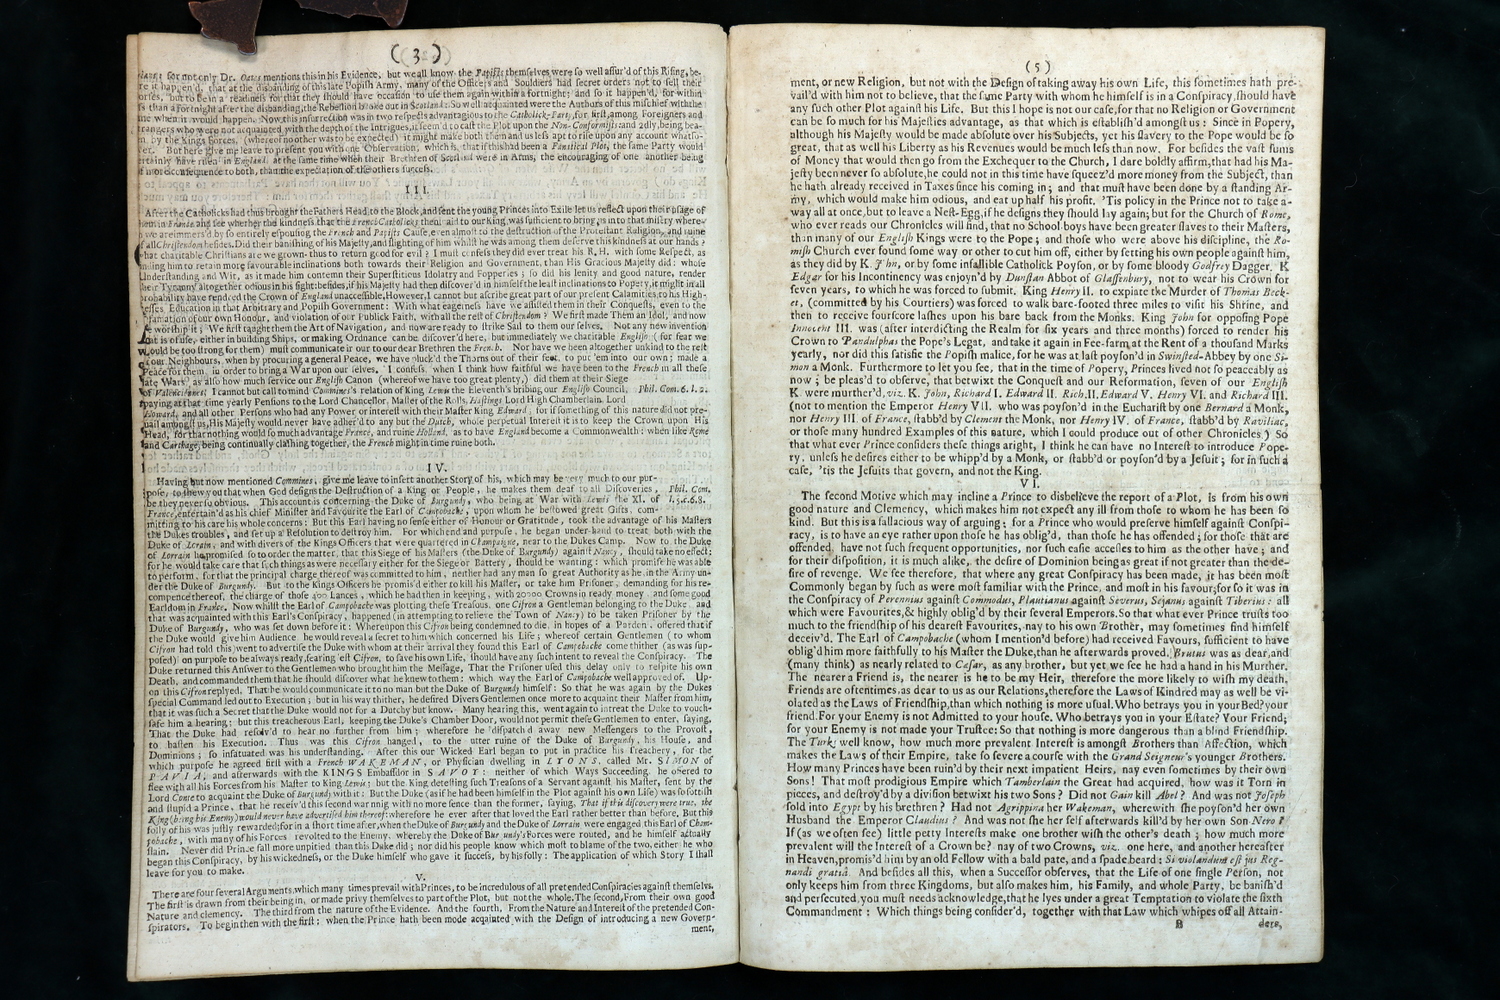 ( 3 )
for not only Dr. Oates mentions this in his Evidence, but we all know the Papists themselves were so well assur'd of this Rising, be-
re it happen'd, that at the disbanding of this late Popish Army, many of the Officers and Souldiers had secret orders not to sell their
orses, but to be in a readiness for that they should have occasion to use them again within a fortnight; and so it happen'd, for within
is than a fortnight after the disbanding, the Rebellion broke out in Scotland: So well acquainted were the Authors of this mischief with the
me when it would happen. Now this insurrection was in two respects advantagious to the Catholick-Party, for first, among Foreigners and
rangers who were not acquainted with the depth of the Intrigues, it seem'd to cast the Plot upon the Non-Conformists: and 2dly, being bea-
n by the Kings Forces, (whereof no other was to be expected) it might make both them and us less apt to rise upon any account whatso-
ver. But here give me leave to present you with one Observation, which is, that if this had been a Fanatical Plot, the same Party would
ertainly have risen in England, at the same time when their Brethren of Scotland were in Arms, the encouraging of one another being
f more consequence to both, than the expectation of the others success.
III.
After the Catholicks had thus brought the Fathers Head to the Block, and sent the young Princes into Exile let us reflect upon their usage of
hem in France and see whether the kindness that the French Catholicks then did to our king was sufficient to bring us into that misery where-
n we are immers'd by so entirely espousing the French and Papists Cause, even almost to the destruction of the Protestant Religion, and ruine
f all Christendom besides. Did their banishing of his Majesty, and slighting of him whilst he was among them deserve this kindness at our hands?
hat charitable Christians are we grown, thus to return good for evil? I must confess they did ever treat his R. H. with some Respect, as
nding him to retain more favourable inclinations both towards their Religion and Government, than His Gracious Majesty did: whose
Understanding and Wit, as it made him contemn their Superstitious Idolatry and Fopperies; so did his lenity and good nature, render
their Tyranny altogether odious in his sight: besides, if his Majesty had then discover'd in himself the least inclinations to Popery, it might in all
probability have rendred the Crown of England unaccessible. However, I cannot but ascribe great part of our present Calamities, to his High-
nesses Education in that Arbitrary and Popish Government: With what eagerness have we assisted them in their Conquests, even to the
ofamation of our own Honour, and violation of our Publick Faith, with all the rest of Christendom? We first made Them an Idol, and now
e worship it; We first taught them the Art of Navigation, and now are ready to strike Sail to them our selves. Not any new invention
hat is of use, either in building Ships, or making Ordnance can be discover'd here, but immediately we charitable English (for fear we
would be too strong for them) must communicate it to our dear Brethren the French. Nor have we been altogether unkind to the rest
of our Neighbours, when by procuring a general Peace, we have pluck'd the Thorns out of their feet, to put 'em into our own; made a
Peace for them, in order to bring a War upon our selves. I confess, when I think how faithful we have been to the French in all these
late Wars, as also how much service our English Canon (whereof we have too great plenty,) did them at their Siege
of Valenciennes; I cannot but call to mind Commines's relation of King Lewis the Eleventh's bribing our English Council, Phil. Com. 6. l. 2.
paying at that time yearly Pensions to the Lord Chancellor, Master of the Rolls, Hastings Lord High Chamberlain, Lord
Howard, and all other Persons who had any Power, or interest with their Master King Edward, for if something of this nature did not pre-
vail amongst us, His Majesty would never have adher'd to any but the Dutch, whose perpetual Interest it is to keep the Crown upon His
Head, for that nothing would so much advantage France, and ruine Holland, as to have England become a Commonwealth: when like Rome
and Carthage, being continually clashing together, the French might in time ruine both.
IV.
Having but now mentioned Commines, give me leave to insert another Story of his, which may be very much to our pur-
pose, to shew you that when God designs the Destruction of a King or People, he makes them deaf to all Discoveries, Phil. Com.
be they never so obvious. This account is concerning the Duke of Burgundy, who being at War with Lewis the XI. of l. 5. c. 6. 8.
France, entertain'd as his chief Minister and Favourite the Earl of Campobache, upon whom he bestowed great Gifts, com-
mitting to his care his whole concerns: But this Earl having no sense either of Honour or Gratitude, took the advantage of his Masters
the Dukes troubles, and set up a Resolution to destroy him. For which end and purpose, he began under-hand to treat both with the
Duke of Lorain, and with divers of the Kings Officers that were quartered in Champaigne, near to the Dukes Camp. Now to the Duke
of Lorrain he promised so to order the matter, that this Siege of his Masters (the Duke of Burgundy) against Nancy, should take no effect:
for he would take care that such things as were necessary either for the Siege or Battery, should be wanting: which promise he was able
to perform, for that the principal charge thereof was committed to him, neither had any man so great Authority as he, in the Army un-
der the Duke of Burgundy. But to the Kings Officers he promis'd either to kill his Master, or take him Prisoner, demanding for his re-
compence thereof, the charge of those 400 Lances, which he had then in keeping, with 20000 Crowns in ready money, and some good
Earldom in France. Now whilst the Earl of Campobache was plotting these Treasons, one Cifron a Gentleman belonging to the Duke, and
that was acquainted with this Earl's Conspiracy, happened (in attempting to relieve the Town of Nancy) to be taken Prisoner by the
Duke of Burgundy, who was set down before it: Whereupon this Cifron being condemned to die, in hopes of a Pardon, offered that if
the Duke would give him Audience he would reveal a secret to him which concerned his Life; whereof certain Gentlemen (to whom
Cifron had told this) went to advertise the Duke with whom at their arrival they found this Earl of Campobache come thither (as was sup-
posed) on purpose to be always ready, fearing lest Cifron, to save his own Life, should have any such intent to reveal the Conspiracy. The
Duke returned this Answer to the Gentlemen who brought him the Message, That the Prisoner used this delay only to respite his own
Death, and commanded them that he should discover what he knew to them: which way the Earl of Campobache well approved of. Up-
on this Cifron replyed, That he would communicate it to no man but the Duke of Burgundy himself: So that he was again by the Dukes
special Command led out to Execution; but in his way thither, he desired Divers Gentlemen once more to acquaint their Master from him,
that it was such a Secret that the Duke would not for a Dutchy but know. Many hearing this, went again to intreat the Duke to vouch-
safe him a hearing: but this treacherous Earl, keeping the Duke's Chamber Door, would not permit these Gentlemen to enter, saying,
That the Duke had resolv'd to hear no further from him; wherefore he dispatch'd away new Messengers to the Provost,
to hasten his Execution. Thus was this Cifron hanged, to the utter ruine of the Duke of Burgundy, his House, and
Dominions; so infatuated was his understanding. After this our Wicked Earl began to put in practice his Treachery, for the
which purpose he agreed first with a French WAKEMAN, or Physician dwelling in LYONS, called Mr. SIMON of
PAVIA, and afterwards with the KINGS Embassador in SAVOY: neither of which Ways Succeeding, he offered to
flee with all his Forces from his Master to King Lewis; but the King detesting such Treasons of a Servant against his Master, sent by the
Lord Conte to acquaint the Duke of Burgundy with it: But the Duke (as if he had been himself in the Plot against his own Life) was so sottish
and stupid a Prince, that he receiv'd this second warning with no more sence than the former, saying, That if this discovery were true, the
King (being his Enemy) would never have advertised him thereof: wherefore he ever after that loved the Earl rather better than before. But this
folly of his was justly rewarded; for in a short time after, when the Duke of Burgundy and the Duke of Lorrain, were engaged this Earl of Cam-
pobache, with many of his Forces revolted to the Enemy, whereby the Duke of Burgundy's Forces were routed, and he himself actually
slain. Never did Prince fall more unpitied than this Duke did; nor did his people know which most to blame of the two, either he who
began this Conspiracy, by his wickedness, or the Duke himself who gave it success, by his folly: The application of which Story I shall
leave for you to make.
V.
There are four several Arguments, which many times prevail with Princes, to be incredulous of all pretended Conspiracies against themselvs.
The first is drawn from their being in, or made privy themselves to part of the Plot, but not the whole. The second, From their own good
Nature and clemency. The third from the nature of the Evidence. And the fourth, From the Nature and Interest of the pretended Con-
spirators. To begin then with the first: when the Prince hath been mode acquiated with the Design of introducing a new Govern-
ment,
( 5 )
ment, or new Religion, but not with the Design of taking away his own Life, this sometimes hath pre-
vail'd with him not to believe, that the same Party with whom he himself is in a Conspiracy, should have
any such other Plot against his Life. But this I hope is not our case, for that no Religion or Government
can be so much for his Majesties advantage, as that which is establish'd amongst us: Since in Popery,
although his Majesty would be made absolute over his Subjects, yet his slavery to the Pope would be so
great, that as well his Liberty as his Revenues would be much less than now. For besides the vast sums
of Money that would then go from the Exchequer to the Church, I dare boldly affirm, that had his Ma-
jesty been never so absolute, he could not in this time have squeez'd more money from the Subject, than
he hath already received in Taxes since his coming in; and that must have been done by a standing Ar-
my, which would make him odious, and eat up half his profit. 'Tis policy in the Prince not to take a-
way all at once, but to leave a Nest-Egg, if he designs they should lay again; but for the Church of Rome,
who ever reads our Chronicles will find, that no School boys have been greater slaves to their Masters,
than many of our English Kings were to the Pope; and those who were above his discipline, the Ro-
mish Church ever found some way or other to cut him off, either by setting his own people against him,
as they did by K. John, or by some infallible Catholick Poyson, or by some bloody Godfrey Dagger. K
Edgar for his Incontinency was enjoyn'd by Dunstan Abbot of Glassenbury, not to wear his Crown for
seven years, to which he was forced to submit. King Henry II. to expiate the Murder of Thomas Beck-
et, (committed by his Courtiers) was forced to walk bare-footed three miles to visit his Shrine, and
then to receive fourscore lashes upon his bare back from the Monks. King John for opposing Pope
Innocent III. was (after interdicting the Realm for six years and three months) forced to render his
Crown to Pandulphus the Pope's Legat, and take it again in Fee-farm at the Rent of a thousand Marks
yearly, nor did this satisfie the Popish malice, for he was at last poyson'd in Swinsted-Abbey by one Si-
mon a Monk. Furthermore to let you see, that in the time of Popery, Princes lived not so peaceably as
now; be pleas'd to observe, that betwixt the Conquest and our Reformation, seven of our English
K. were murther'd, viz. K. John, Richard I. Edward II. Rich. II. Edward V. Henry VI. and Richard III.
(not to mention the Emperor Henry VII. who was poyson'd in the Eucharist by one Bernard a Monk,
nor Henry III. of France, stabb'd by Clement the Monk, nor Henry IV. of France, stabb'd by Raviliac,
or those many hundred Examples of this nature, which I could produce out of other Chronicles) So
that what ever Prince considers these things aright, I think he can have no Interest to introduce Pope-
ry, unless he desires either to be whipp'd by a Monk, or stabb'd or poyson'd by a Jesuit; for in such a
case, 'tis the Jesuits that govern, and not the King.
VI.
The second Motive which may incline a Prince to disbelieve the report of a Plot, is from his own
good nature and Clemency, which makes him not expect any ill from those to whom he has been so
kind. But this is a fallacious way of arguing; for a Prince who would preserve himself against Conspi-
racy, is to have an eye rather upon those he has oblig'd, than those he has offended; for those that are
offended, have not such frequent opportunities, nor such easie accesses to him as the other have; and
for their disposition, it is much alike, the desire of Dominion being as great if not greater than the de-
sire of revenge. We see therefore, that where any great Conspiracy has been made, it has been most
Commonly began by such as were most familiar with the Prince, and most in his favour; for so it was in
the Conspiracy of Perennius against Commodus, Plautianus against Severus, Sejanus against Tiberius: all
which were Favourites, & highly oblig'd by their several Emperors. So that what ever Prince trusts too
much to the friendship of his dearest Favourites, nay to his own Brother, may sometimes find himself
deceiv'd. The Earl of Campobache (whom I mention'd before) had received Favours, sufficient to have
oblig'd him more faithfully to his Master the Duke, than he afterwards proved. Brutus was as dear, and
(many think) as nearly related to Cæsar, as any brother, but yet we see he had a hand in his Murther.
The nearer a Friend is, the nearer is he to be my Heir, therefore the more likely to wish my death,
Friends are oftentimes as dear to us as our Relations, therefore the Laws of Kindred may as well be vi-
olated as the Laws of Friendship, than which nothing is more usual. Who betrays you in your Bed? your
friend. For your Enemy is not Admitted to your house. Who betrays you in your Estate? Your Friend;
for your Enemy is not made your Trustee: So that nothing is more dangerous than a blind Friendship.
The Turks well know, how much more prevalent Interest is amongst Brothers than Affection, which
makes the Laws of their Empire, take so severe a course with the Grand Seigneur's younger Brothers.
How many Princes have been ruin'd by their next impatient Heirs, nay even sometimes by their own
Sons! That most prodigious Empire which Tamberlain the Great had acquired, how was it Torn in
pieces, and destroy'd by a division betwixt his two Sons? Did not Gain kill Abel? And was not Joseph
sold into Egypt by his brethren? Had not Agrippina her Wakeman, wherewith she poyson'd her own
Husband the Emperor Claudius? And was not she her self afterwards kill'd by her own Son Nero?
If (as we often see) little petty Interests make one brother wish the other's death; how much more
prevalent will the Interest of a Crown be? nay of two Crowns, viz. one here, and another hereafter
in Heaven, promis'd him by an old Fellow with a bald pate, and a spade beard: Si violandum est jus Reg-
nandi gratiâ. And besides all this, when a Successor observes, that the Life of one single Person, not
only keeps him from three Kingdoms, but also makes him, his Family, and whole Party, be banish'd
and persecuted, you must needs acknowledge, that he lyes under a great Temptation to violate the sixth
Commandment: Which things being consider'd, together with that Law which whipes off all Attain-
B ders,